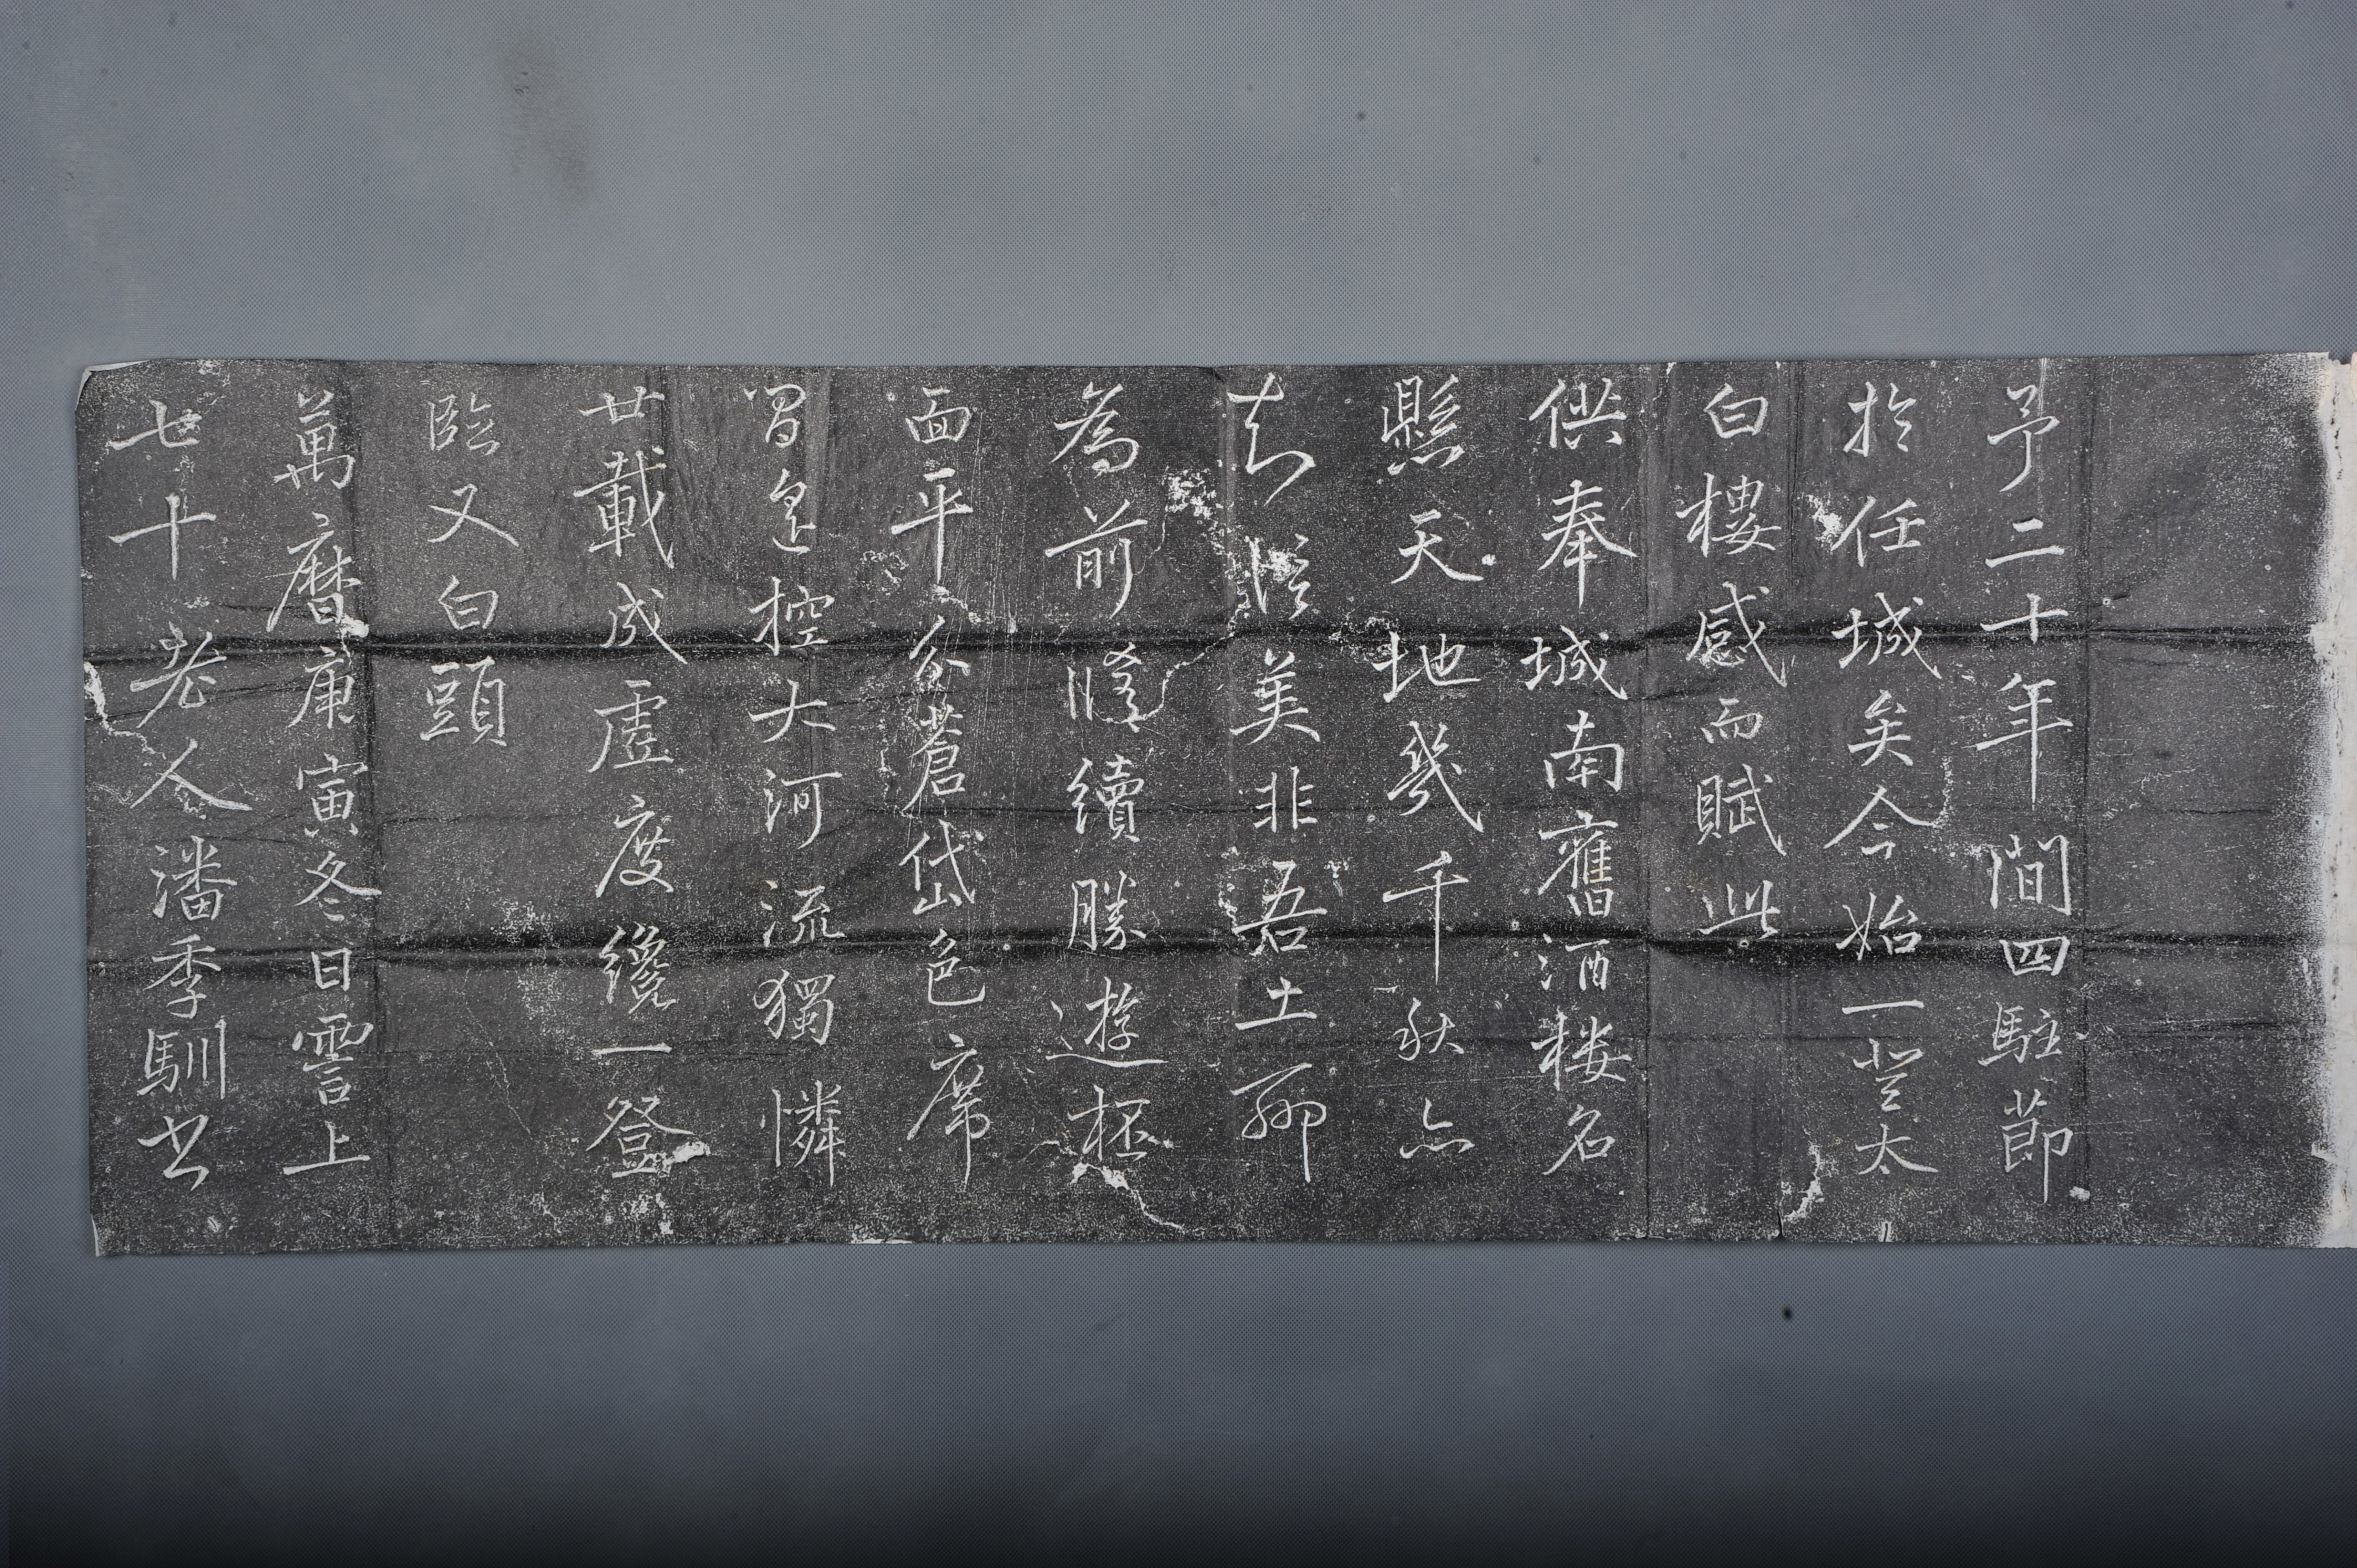 予二十年間四駐莭
於任城矣今始一登太
白樓感而賦此
供奉城南舊酒楼名
懸天地幾千秋亦
知信美非吾土聊
為前脩續勝遊柸
面平分蒼岱色席
間遙控大河流獨憐
廿載成虛度纔一登
臨又白頭
萬曆庚寅冬日霅上
七十老人潘季馴書